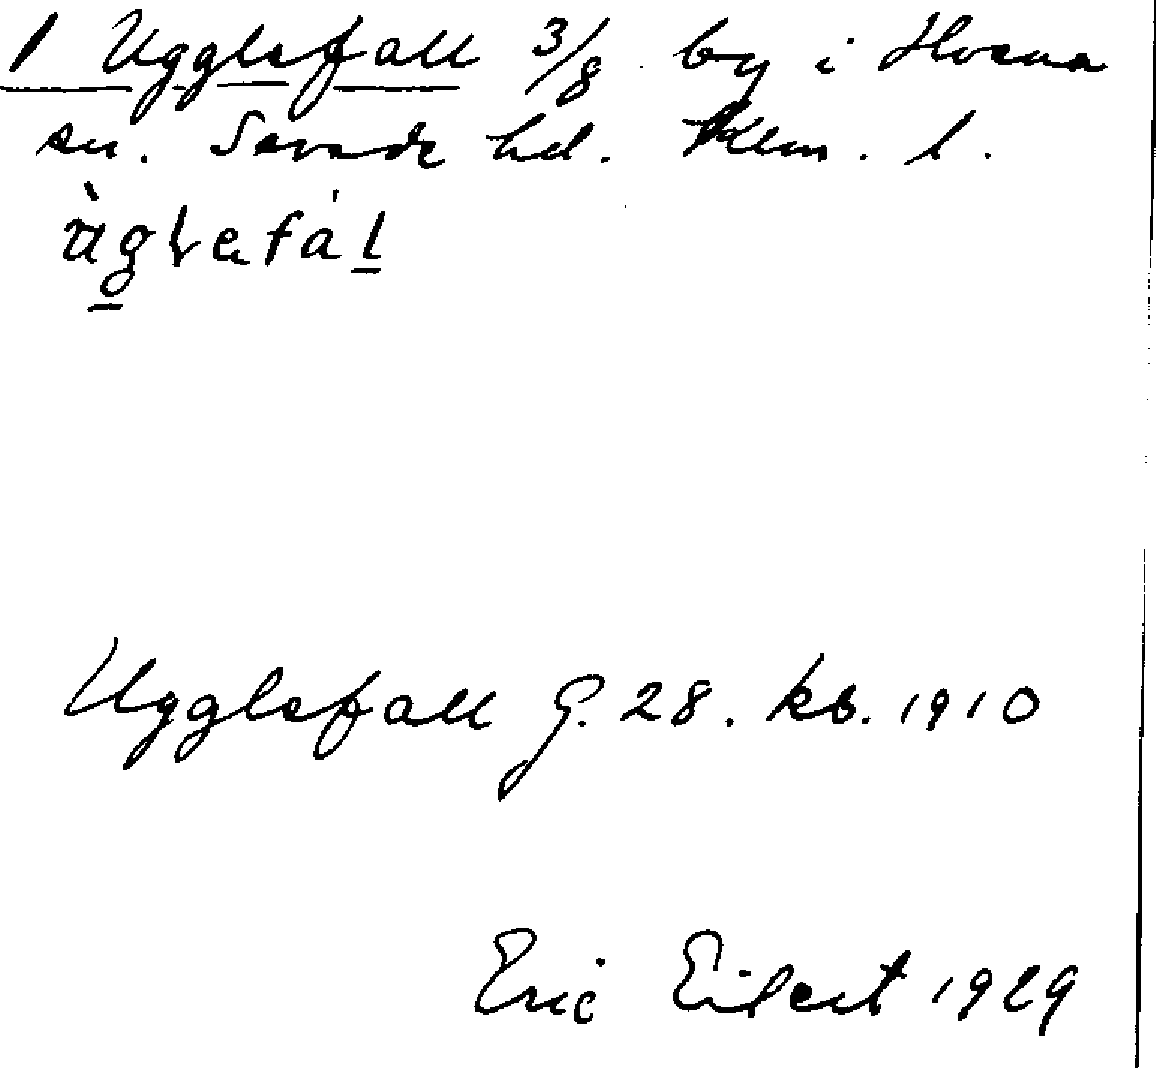 1 Ugglefall 3/8 by i Hvena
sn. Sevede hd. Klm. l.
ùglefál
Ugglefall G. 28. kb. 1910
Eric Eilert 1929